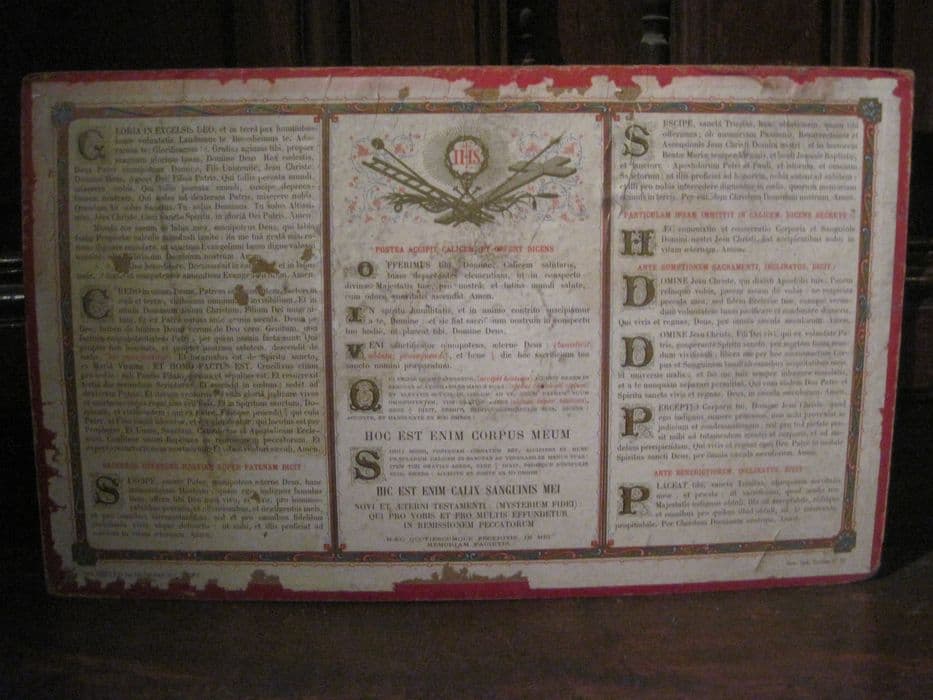 GLORIA IN EXCELSIS DEO, et in terra pax hominibus
bonæ voluntatis Laudamus te. Benedicimus te. Ado-
ramus te. Glorificamus te. Gratias agimus tibi, propter
magnam gloriam tuam, Domine Deus Rex cœlestis,
Deus Pater omnipotens Domine, Fili Unigenite, Jesu Christe.
Domine Deus, Agnus Dei Filius Patris, Qui tollis peccata mundi,
miserere nobis. Qui tollis peccata mundi, suscipe depreca-
tionem nostram. Qui sedes ad dexteram Patris, miserere nobis.
Quoniam tu solus Sanctus. Tu solus Dominus. Tu solus Altissi-
mus, Jesu Christe. Cum Sancto Spiritu, in gloria Dei Patris. Amen.
Munda cor meum, ac labia mea, omnipotens Deus, qui labia
Isaiæ Prophetæ calculo mundasti ignito: ita me tua grata mise-
ratione dignare mundare, ut sanctum Evangelium tuum digne valeam
nuntiare. Per Christum Dominum nostrum. Amen.
benedicere. Dominus sit in corde meo et in labiis
meis,
Evangelium suum. Amen.
CREDO in unum Deum, Patrem omnipotentem, factorem
cœli et terræ, visibilium omnium et invisibilium. Et in
unum Dominum Jesum Christum, Filium Dei unigeni-
tum. Et ex Patre natum ante omnia sæcula. Deum de
Deo, lumen de lumine, Deum verum de Deo vero. Genitum, non
factum consubstantialem Patri, per quem omnia facta sunt. Qui
propter nos homines, et propter nostram salutem, descendit de
cœlis. Et incarnatus est de Spiritu sancto,
ex Maria Virgine: ET HOMO FACTUS EST. Crucifixus etiam
pro nobis sub Pontio Pilato, passus et sepultus est. Et resurrexit
tertia die secundum Scripturas. Et ascendit in cœlum: sedet ad
dexteram Patris. Et iterum venturus est cum gloria, judicare vivos
et mortuos: cujus regni non erit finis. Et in Spiritum sanctum, Do-
minum, et vivificantem: qui ex Patre, Filioque procedit: qui cum
Patre, et Filio simul adoratur, et conglorificatur: qui locutus est per
Prophetas. Et Unam, Sanctam, Catholicam et Apostolicam Eccle-
siam. Confiteor unum Baptisma in remissionem peccatorum. Et
exspecto resurrectionem mortuorum. Et vitam
SACERDOS OFFERENS HOSTIAM SUPER PATENAM DICIT
SUSCIPE, sancte Pater, omnipotens æterne Deus, hanc
immaculatam Hostiam, quam ego indignus famulus
tuus offero tibi Deo meo vivo, et vero, pro innume-
rabilibus peccatis, et offensionibus, et negligentiis meis,
et pro omnibus circumstantibus, sed et pro omnibus fidelibus
christianis vivis atque defunctis: ut mihi, et illis proficiat ad
salutem in vitam æternam. Amen.
IHS
POSTEA ACCIPIT CALICEM, ET OFFERT DICENS
OFFERIMUS tibi, Domine, Calicem salutaris,
tuam deprecantes clementiam: ut in conspectu
divinæ Majestatis tuæ, pro nostra et totius mundi salute,
cum odore suavitatis ascendat. Amen.
IN spiritu humilitatis, et in animo contrito suscipiamur
a te, Domine, et sic fiat sacrificium nostrum in conspectu
tuo hodie, ut placeat tibi, Domine Deus.
VENI sanctificator omnipotens, æterne Deus,
et benedic hoc sacrificium tuo
sancto nomini præparatum.
QUI PRIDIE QUAM PATERETUR,
HOC EST ENIM CORPUS MEUM
SIMILI MODO, POSTQUAM CŒNATUM EST, ACCIPIENS ET HUNC
PRÆCLARUM CALICEM IN SANCTAS AC VENERABILES MANUS SUAS:
ITEM TIBI GRATIAS AGENS, BENEDIXIT, DEDITQUE DISCIPULIS
SUIS, DICENS: ACCIPITE ET BIBITE EX EO OMNES
HIC EST ENIM CALIX SANGUINIS MEI
NOVI ET ÆTERNI TESTAMENTI: (MYSTERIUM FIDEI)
QUI PRO VOBIS ET PRO MULTIS EFFUNDETUR
IN REMISSIONEM PECCATORUM
HÆC QUOTIESCUMQUE FECERITIS, IN MEI
MEMORIAM FACIETIS.
SUSCIPE, sancta Trinitas, hanc oblationem, quam tibi
offerimus, ob memoriam Passionis, Resurrectionis et
Ascensionis Jesu Christi Domini nostri: et in honorem
Beatæ Mariæ semper Virginis, et beati Joannis Baptistæ,
et sanctorum Apostolorum Petri et Pauli, et istorum, et omnium
Sanctorum: ut illis proficiat ad honorem, nobis autem ad salutem:
et illi pro nobis intercedere dignentur in cœlis, quorum memoriam
agimus in terris. Per eumdem Christum Dominum nostrum. Amen.
PARTICULAM IPSAM IMMITTIT IN CALICEM, DICENS SECRETO
HÆC commixtio et consecratio Corporis et Sanguinis
Domini nostri Jesu Christi, fiat accipientibus nobis in
vitam æternam. Amen.
ANTE SUMPTIONEM SACRAMENTI, INCLINATUS, DICIT:
DOMINE Jesu Christe, qui dixisti Apostolis tuis: Pacem
relinquo vobis, pacem meam do vobis: ne respicias
peccata mea, sed fidem Ecclesiæ tuæ, eamque secun-
dum voluntatem tuam pacificare et coadunare digneris.
Qui vivis et regnas, Deus, per omnia sæcula sæculorum. Amen.
DOMINE Jesu Christe, Fili Dei vivi, qui ex voluntate Pa-
tris, cooperante Spiritu sancto, per mortem tuam mun-
dum vivificasti: libera me per hoc sacrosanctum Cor-
pus et Sanguinem tuum ab omnibus iniquitatibus meis, et
universis malis, et fac me tuis semper inhærere mandatis,
et a te nunquam separari permittas. Qui cum eodem Deo Patre et
Spiritu sancto vivis et regnas, Deus, in sæcula sæculorum. Amen.
PERCEPTIO Corporis tui, Domine Jesu Christe, quod
ego indignus sumere præsumo, non mihi proveniat in
judicium et condemnationem: sed pro tua pietate pro-
sit mihi ad tutamentum mentis et corporis, et ad me-
delam percipiendam. Qui vivis et regnas cum Deo Patre in unitate
Spiritus sancti Deus, per omnia sæcula sæculorum. Amen.
ANTE BENEDICTIONEM, INCLINATUS, DICIT
PLACEAT tibi, sancta Trinitas, obsequium servitutis
meæ, et præsta: ut sacrificium, quod oculis tuæ
Majestatis indignus obtuli, tibi sit acceptabile, mihique
et omnibus pro quibus illud obtuli, sit, te miserante,
propitiabile. Per Christum Dominum nostrum. Amen.